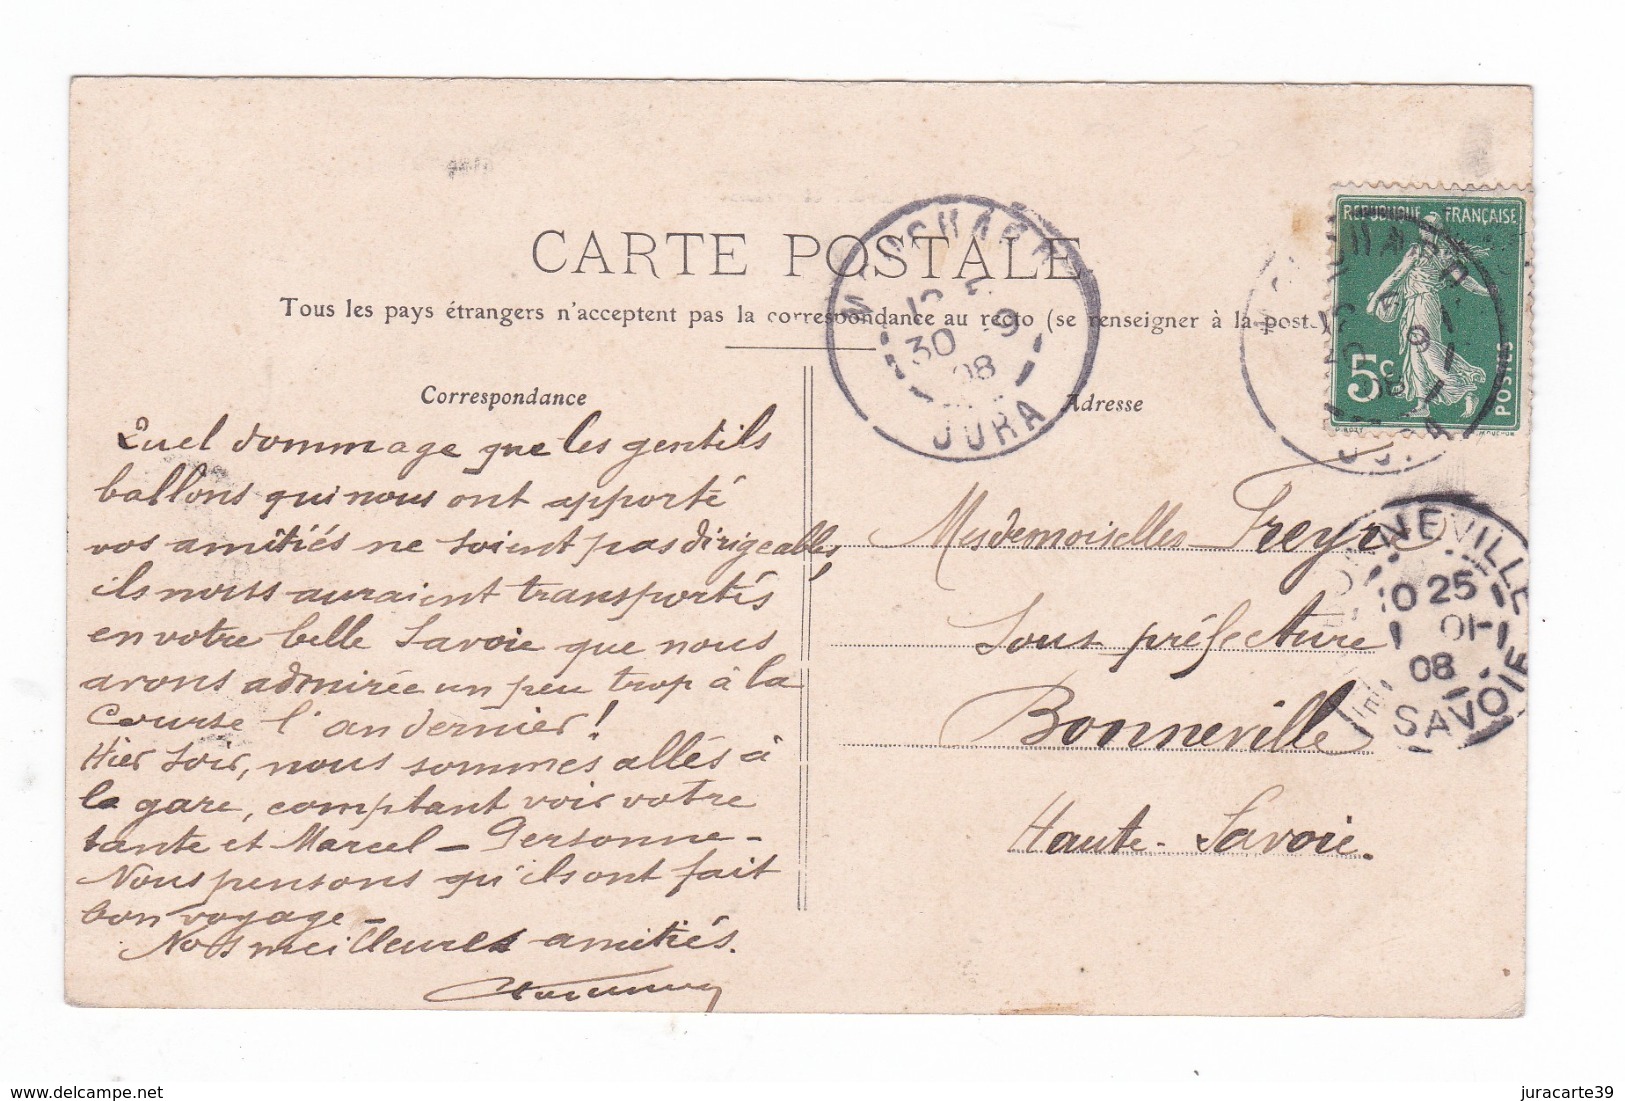 CARTE POSTALE
Tous les pays étrangers n'acceptent pas la correspondance au recto (se renseigner à la poste)
Correspondance
Adresse
Quel dommage que les gentils
ballons qui nous ont apporté
vos amitiés ne soient pas dirigeables
ils nous auraient transportés
en votre belle Savoie que nous
avons admirée un peu trop à la
course l'an dernier!
Hier soir, nous sommes allés à
la gare, comptant voir votre
tante et Marcel - Personne -
Nous pensons qu'ils ont fait
bon voyage -
Nos meilleures amitiés.
Mesdemoiselles Freyr
Sous-préfecture
Bonneville
Haute-Savoie.
MOUCHARD
30 9
08
JURA
REPUBLIQUE FRANÇAISE
5c
POSTES
BONNEVILLE
10 25
01-
08
SAVOIE
www.delcampe.net
juracarte39